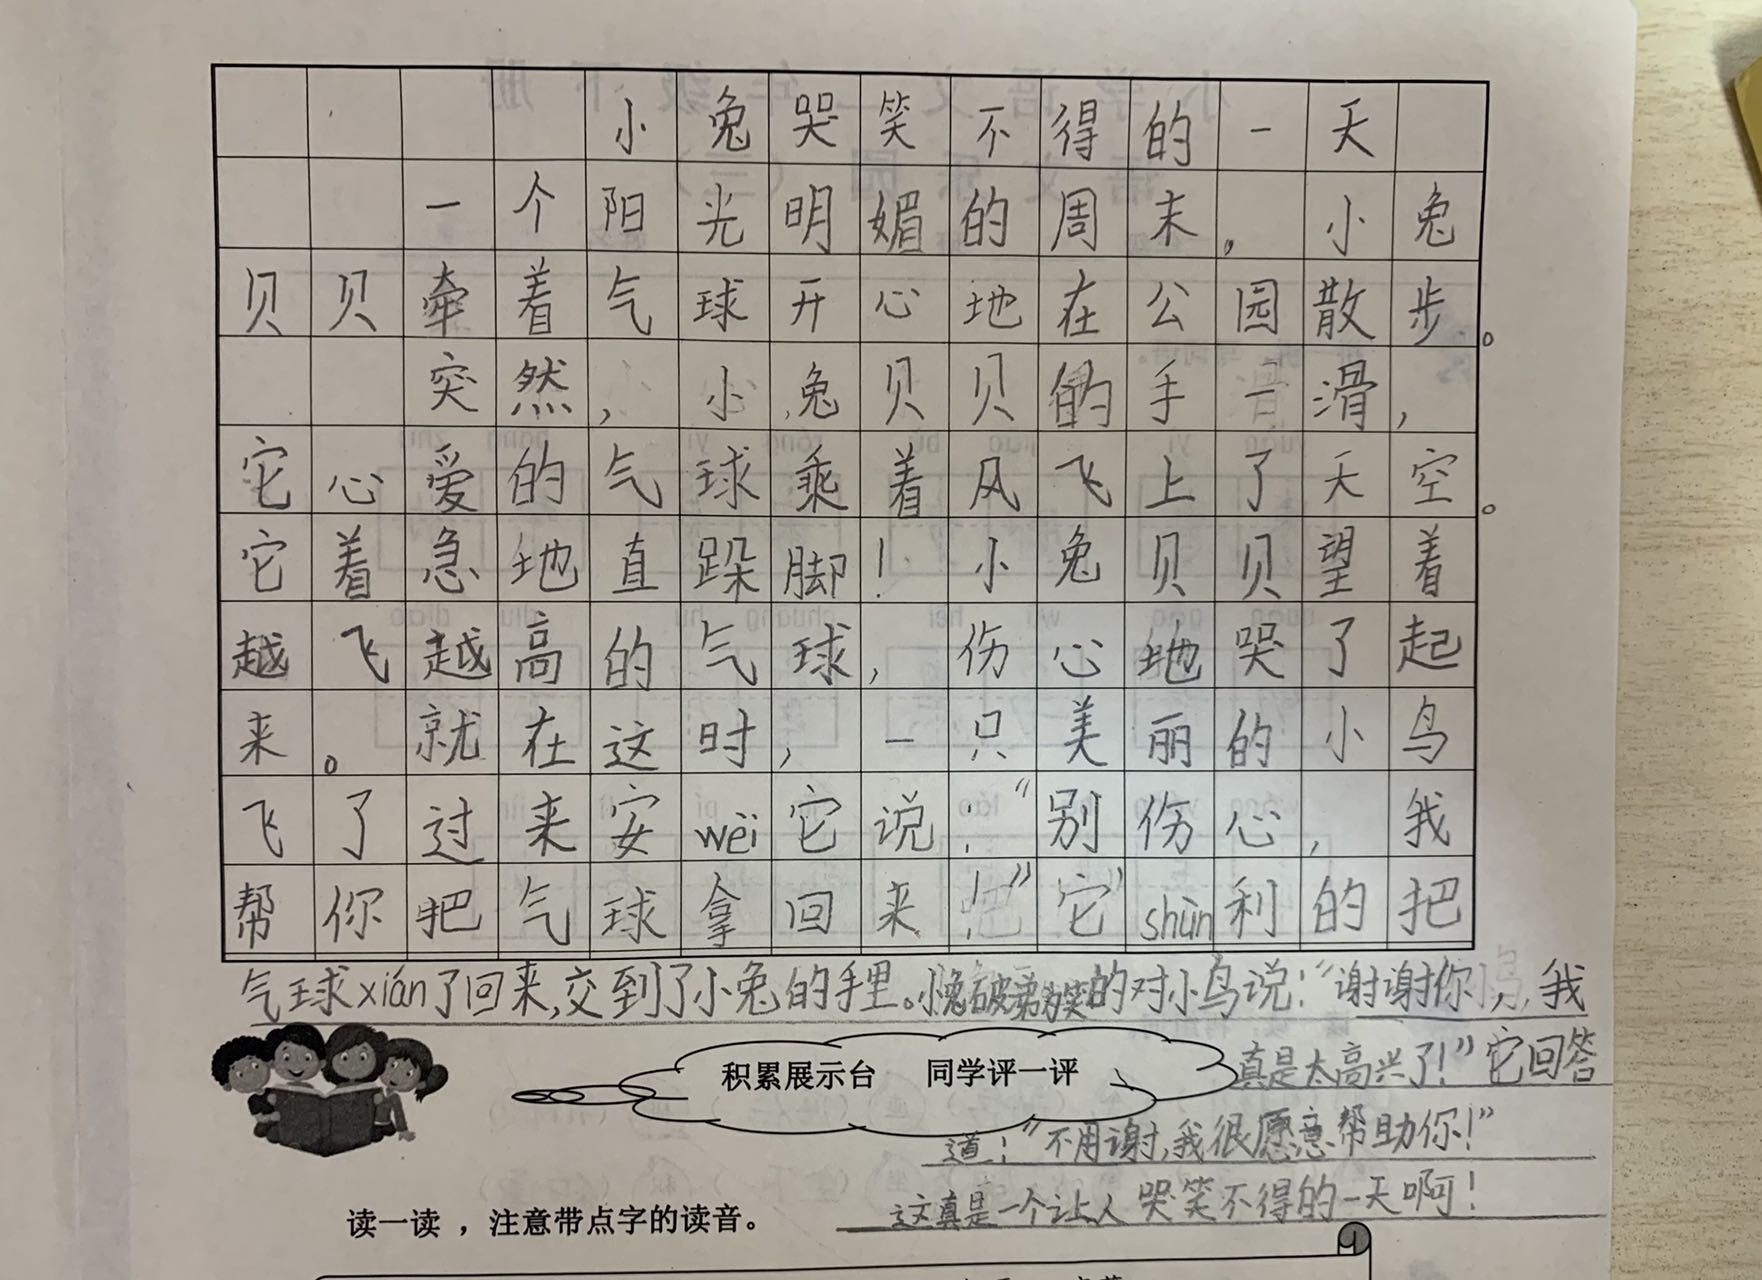 小兔哭笑不得的一天
一个阳光明媚的周末，小兔
贝贝牵着气球开心地在公园散步。
突然，小兔贝贝的手一滑，
它心爱的气球乘着风飞上了天空。
它着急地直跺脚！小兔贝贝望着
越飞越高的气球，伤心地哭了起
来。就在这时，一只美丽的小鸟
飞了过来安wèi它说：“别伤心，我
帮你把气球拿回来！”它shùn利的把
气球xián了回来，交到了小兔的手里。小兔破涕为笑的对小鸟说：“谢谢你，我
真是太高兴了！”它回答
道：“不用谢，我很愿意帮助你！”
这真是一个让人哭笑不得的一天啊！
积累展示台 同学评一评
读一读，注意带点字的读音。